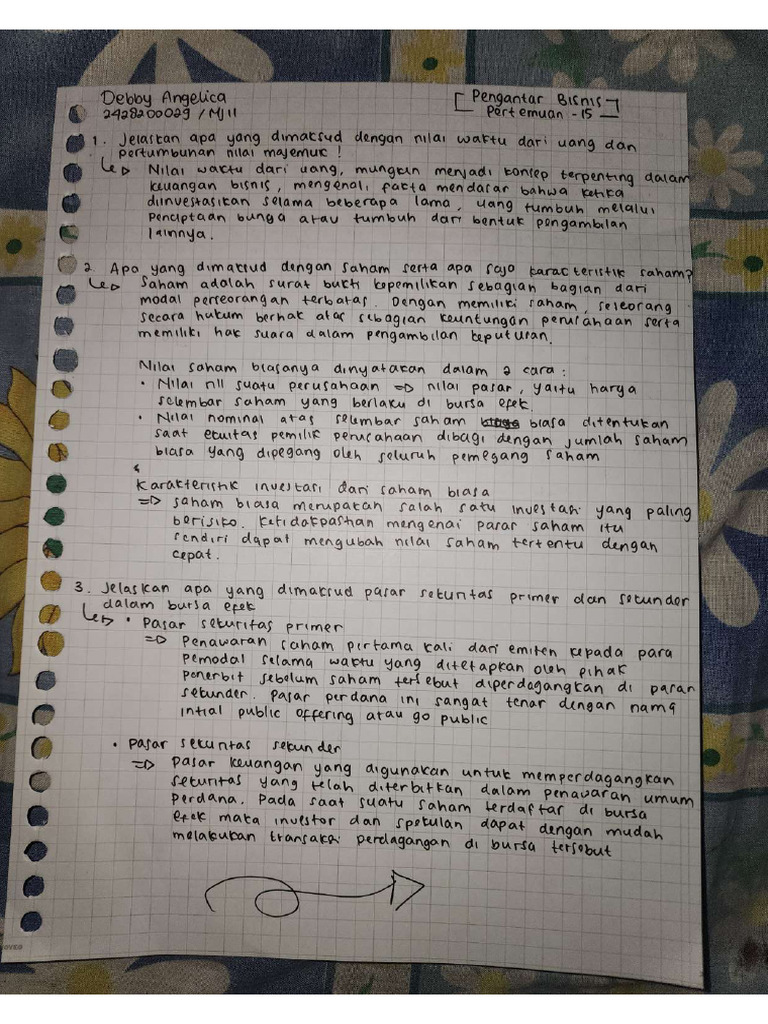 Debby Angelica
2428200029 / MJ11
[ Pengantar Bisnis ]
Pertemuan - 15
1. Jelaskan apa yang dimaksud dengan nilai waktu dari uang dan
pertumbuhan nilai majemuk !
Nilai waktu dari uang, mungkin menjadi konsep terpenting dalam
keuangan bisnis, mengenali fakta mendasar bahwa ketika
diinvestasikan selama beberapa lama, uang tumbuh melalui
penciptaan bunga atau tumbuh dari bentuk pengambilan
lainnya.
2. Apa yang dimaksud dengan saham serta apa saja karacteristik saham?
Saham adalah surat bukti kepemilikan sebagian bagian dari
modal perseorangan terbatas. Dengan memiliki saham, seseorang
secara hukum berhak atas sebagian keuntungan perusahaan serta
memiliki hak suara dalam pengambilan keputusan.
Nilai saham biasanya dinyatakan dalam 2 cara :
• Nilai riil suatu perusahaan => nilai pasar, yaitu harga
selembar saham yang berlaku di bursa efek.
• Nilai nominal atas selembar saham biasa ditentukan
saat ekuitas pemilik perusahaan dibagi dengan jumlah saham
biasa yang dipegang oleh seluruh pemegang saham
Karakteristik investasi dari saham biasa
=> saham biasa merupakan salah satu investasi yang paling
berisiko. Ketidakpastian mengenai pasar saham itu
sendiri dapat mengubah nilai saham tertentu dengan
cepat.
3. Jelaskan apa yang dimaksud pasar sekuritas primer dan sekunder
dalam bursa efek
• Pasar sekuritas primer
=> Penawaran saham pertama kali dari emiten kepada para
pemodal selama waktu yang ditetapkan oleh pihak
penerbit sebelum saham tersebut diperdagangkan di pasar
sekunder. Pasar perdana ini sangat tenar dengan nama
intial public offering atau go public
• Pasar sekuritas sekunder
=> Pasar keuangan yang digunakan untuk memperdagangkan
sekuritas yang telah diterbitkan dalam penawaran umum
perdana. Pada saat suatu saham terdaftar di bursa
efek maka investor dan spekulan dapat dengan mudah
melakukan transaksi perdagangan di bursa tersebut